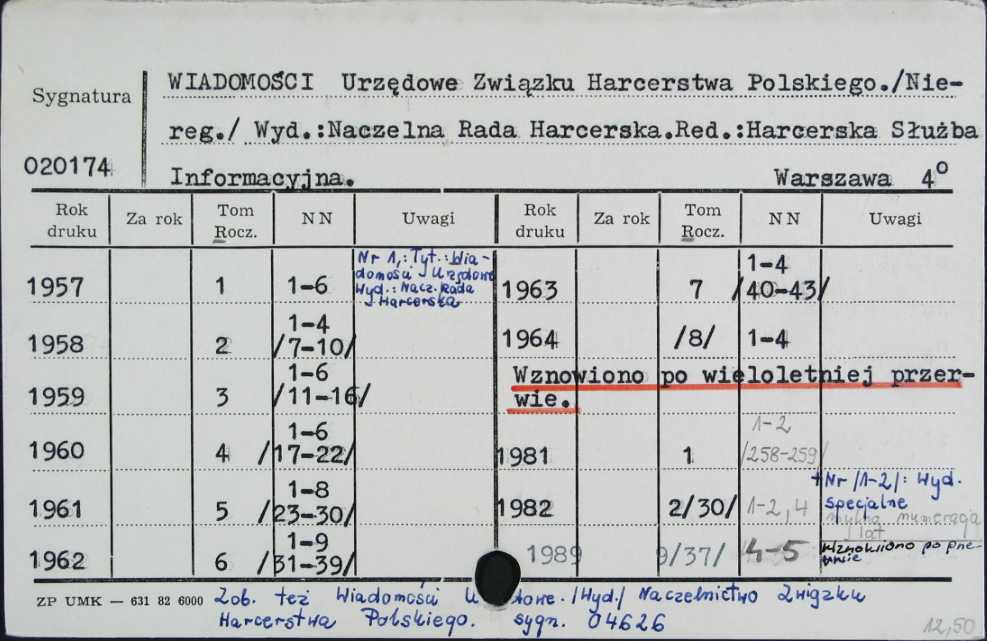 WIADOMOŚCI Urzędowe Związku Harcerstwa Polskiego./Nie-
Sygnatura
reg./ Wyd.:Naczelna Rada Harcerska.Red.:Harcerska Służba
020174
Informacyjna. Warszawa 4°
Rok druku Za rok Tom Rocz. NN Uwagi Rok druku Za rok Tom Rocz. NN Uwagi
1957 1 1-6
Nr 1,: Tyt.: Wia-
domości Urzędowe
Wyd.: Nacz. Rada
Harcerska
1958 2 1-4 /7-10/
1959 3 1-6 /11-16/
1960 4 1-6 /17-22/
1961 5 1-8 /23-30/
1962 6 1-9 /31-39/
1963 7 1-4 /40-43/
1964 /8/ 1-4
Wznowiono po wieloletniej przer-
wie.
1981 1 1-2 /258-259/
1982 2/30/ 1-2, 4
+Nr /1-2/: Wyd.
specjalne
mylna numeracja
lat
1989 9/37/ 4-5
Wznowiono po prze-
rwie
ZP UMK — 631 82 6000
Zob. też Wiadomości /Wyd./ Naczelnictwo Związku
Harcerstwa Polskiego. sygn. 04626
12,50